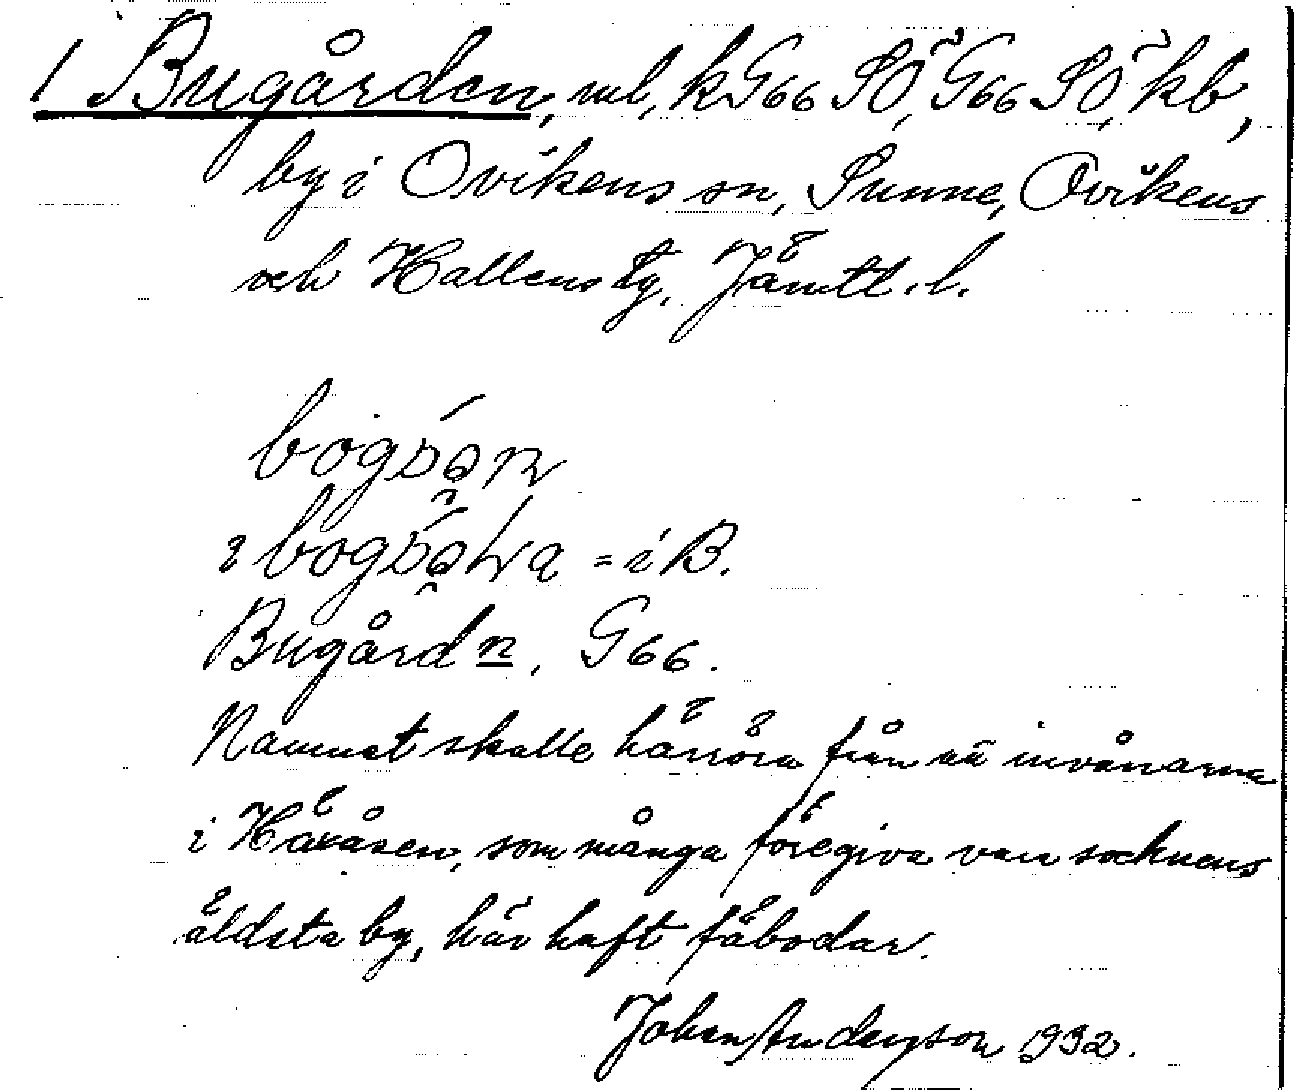 1 Bugården, ml, kG66 SÖ, G66 SÖ, kb,
by i Ovikens sn, Sunne, Ovikens
och Hallens tg, Jämtl. l.
= i B.
Bugårdn, G66.
Namnet skulle härröra från att invånarna
i Häråsen, som många föregiva vara socknens
äldsta by, här haft fäbodar.
Johan Andersson 1932.